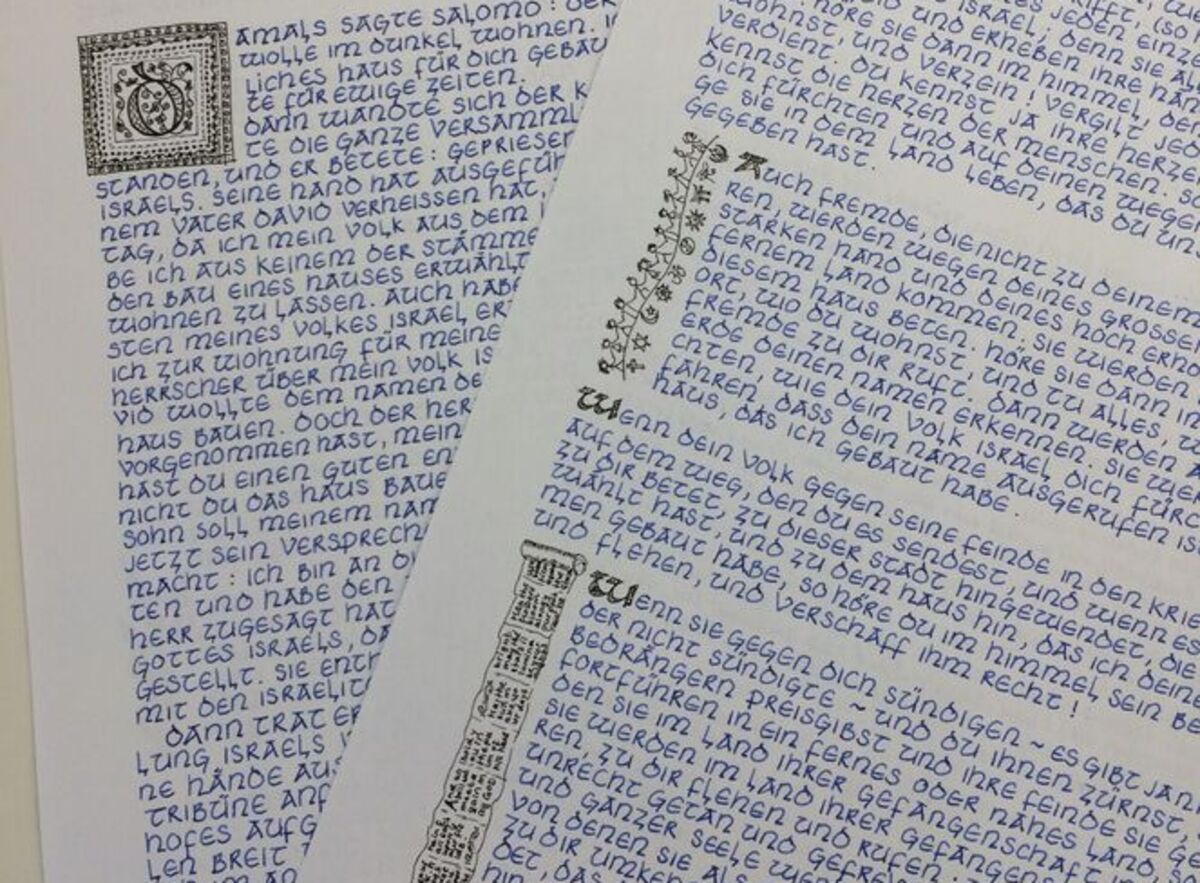 DAMALS SAGTE SALOMO: DER
WOLLE IM DUNKEL WOHNEN. I
LICHES HAUS FÜR DICH GEBAU
TE FÜR EWIGE ZEITEN.
DANN WANDTE SICH DER K
TE DIE GANZE VERSAMML
STANDEN, UND ER BETETE: GEPRIESEN
ISRAELS. SEINE HAND HAT AUSGEFÜH
NEM VATER DAVID VERHEISSEN HAT,
TAG, DA ICH MEIN VOLK AUS DEM
BE ICH AUS KEINEM DER STÄMME
DEN BAU EINES HAUSES ERWÄHLT
WOHNEN ZU LASSEN. AUCH HABE
STEN MEINES VOLKES ISRAEL ER
ICH ZUR WOHNUNG FÜR MEINE
HERRSCHER ÜBER MEIN VOLK IS
VID WOLLTE DEM NAMEN DE
HAUS BAUEN. DOCH DER HER
VORGENOMMEN HAST, MEIN
HAST DU EINEN GUTEN EN
NICHT DU DAS HAUS BAUE
SOHN SOLL MEINEM NAM
JETZT SEIN VERSPRECH
MACHT: ICH BIN AN DI
TEN UND HABE DEN
HERR ZUGESAGT HAT
GOTTES ISRAELS, DA
GESTELLT. SIE ENTH
MIT DEN ISRAELIT
DANN TRAT ER
LUNG ISRAELS V
NE HÄNDE AUS
TRIBÜNE ANF
HOFES AUFG
LEN BREIT
RIFFT, (SO
ES JEDEN EINZE
ISRAEL; DENN SIE ALL
UND ERHEBEN IHRE HÄN
WOHNST, UND VERZEIH! VERGILT JED
VERDIENT. DU KENNST JA IHRE HERZE
KENNST DIE HERZEN DER MENSCHEN. S
DICH FÜRCHTEN UND AUF DEINEN WEGEN
GE SIE IN DEM LAND LEBEN, DAS DU UNS
GEGEBEN HAST.
AUCH FREMDE, DIE NICHT ZU DEINEM
REN, WERDEN WEGEN DEINES GROSSEN
STARKEN HAND UND DEINES HOCH ERHO
FERNEM LAND KOMMEN; SIE WERDEN
DIESEM HAUS BETEN. HÖRE SIE DANN IM
ORT, WO DU WOHNST, UND TU ALLES,
FREMDE ZU DIR RUFT. DANN WERDEN A
ERDE DEINEN NAMEN ERKENNEN. SIE WER
CHTEN, WIE DEIN VOLK ISRAEL DICH FÜRC
FAHREN, DASS DEIN NAME AUSGERUFEN IS
HAUS, DAS ICH GEBAUT HABE.
WENN DEIN VOLK GEGEN SEINE FEINDE IN DEN KRIE
AUF DEM WEG, DEN DU ES SENDEST, UND WENN ES
ZU DIR BETET, ZU DIESER STADT HINGEWENDET, DIE
WÄHLT HAST, UND ZU DEM HAUS HIN, DAS ICH DEIN
MEN GEBAUT HABE, SO HÖRE DU IM HIMMEL SEIN BE
UND FLEHEN, UND VERSCHAFF IHM RECHT!
WENN SIE GEGEN DICH SÜNDIGEN ~ ES GIBT JA N
DER NICHT SÜNDIGTE ~ UND DU IHNEN ZÜRNST,
BEDRÄNGERN PREISGIBST UND IHRE FEINDE SIE GE
FORTFÜHREN IN EIN FERNES ODER NAHES LAND, SO
DEN SIE IM LAND IHRER GEFANGENSCHAFT
SIE WERDEN IM LAND IHRER GEFANGENS
REN, ZU DIR FLEHEN UND RUFEN:
UNRECHT GETAN UND GEFREV
UND GANZER SEELE
VON DENEN SIE ALS
ZU DIR UMKEH
DET, DAS